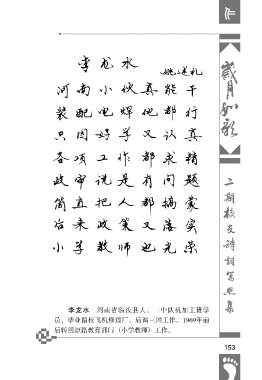 李龙水
姚送礼
河南小伙真能干
装配电焊他都行
只因好学又认真
各项工作都求精
政审说是有问题
简直把人都搞蒙
后来政策又落实
小学教师也光荣
李龙水 河南省临汝县人。一中队机加工班学
员，毕业留校飞机修造厂、后离三河工作。1969年前
后转回原路教育部门（小学教师）工作。
岁月如歌
二期校友诗词写照集
153